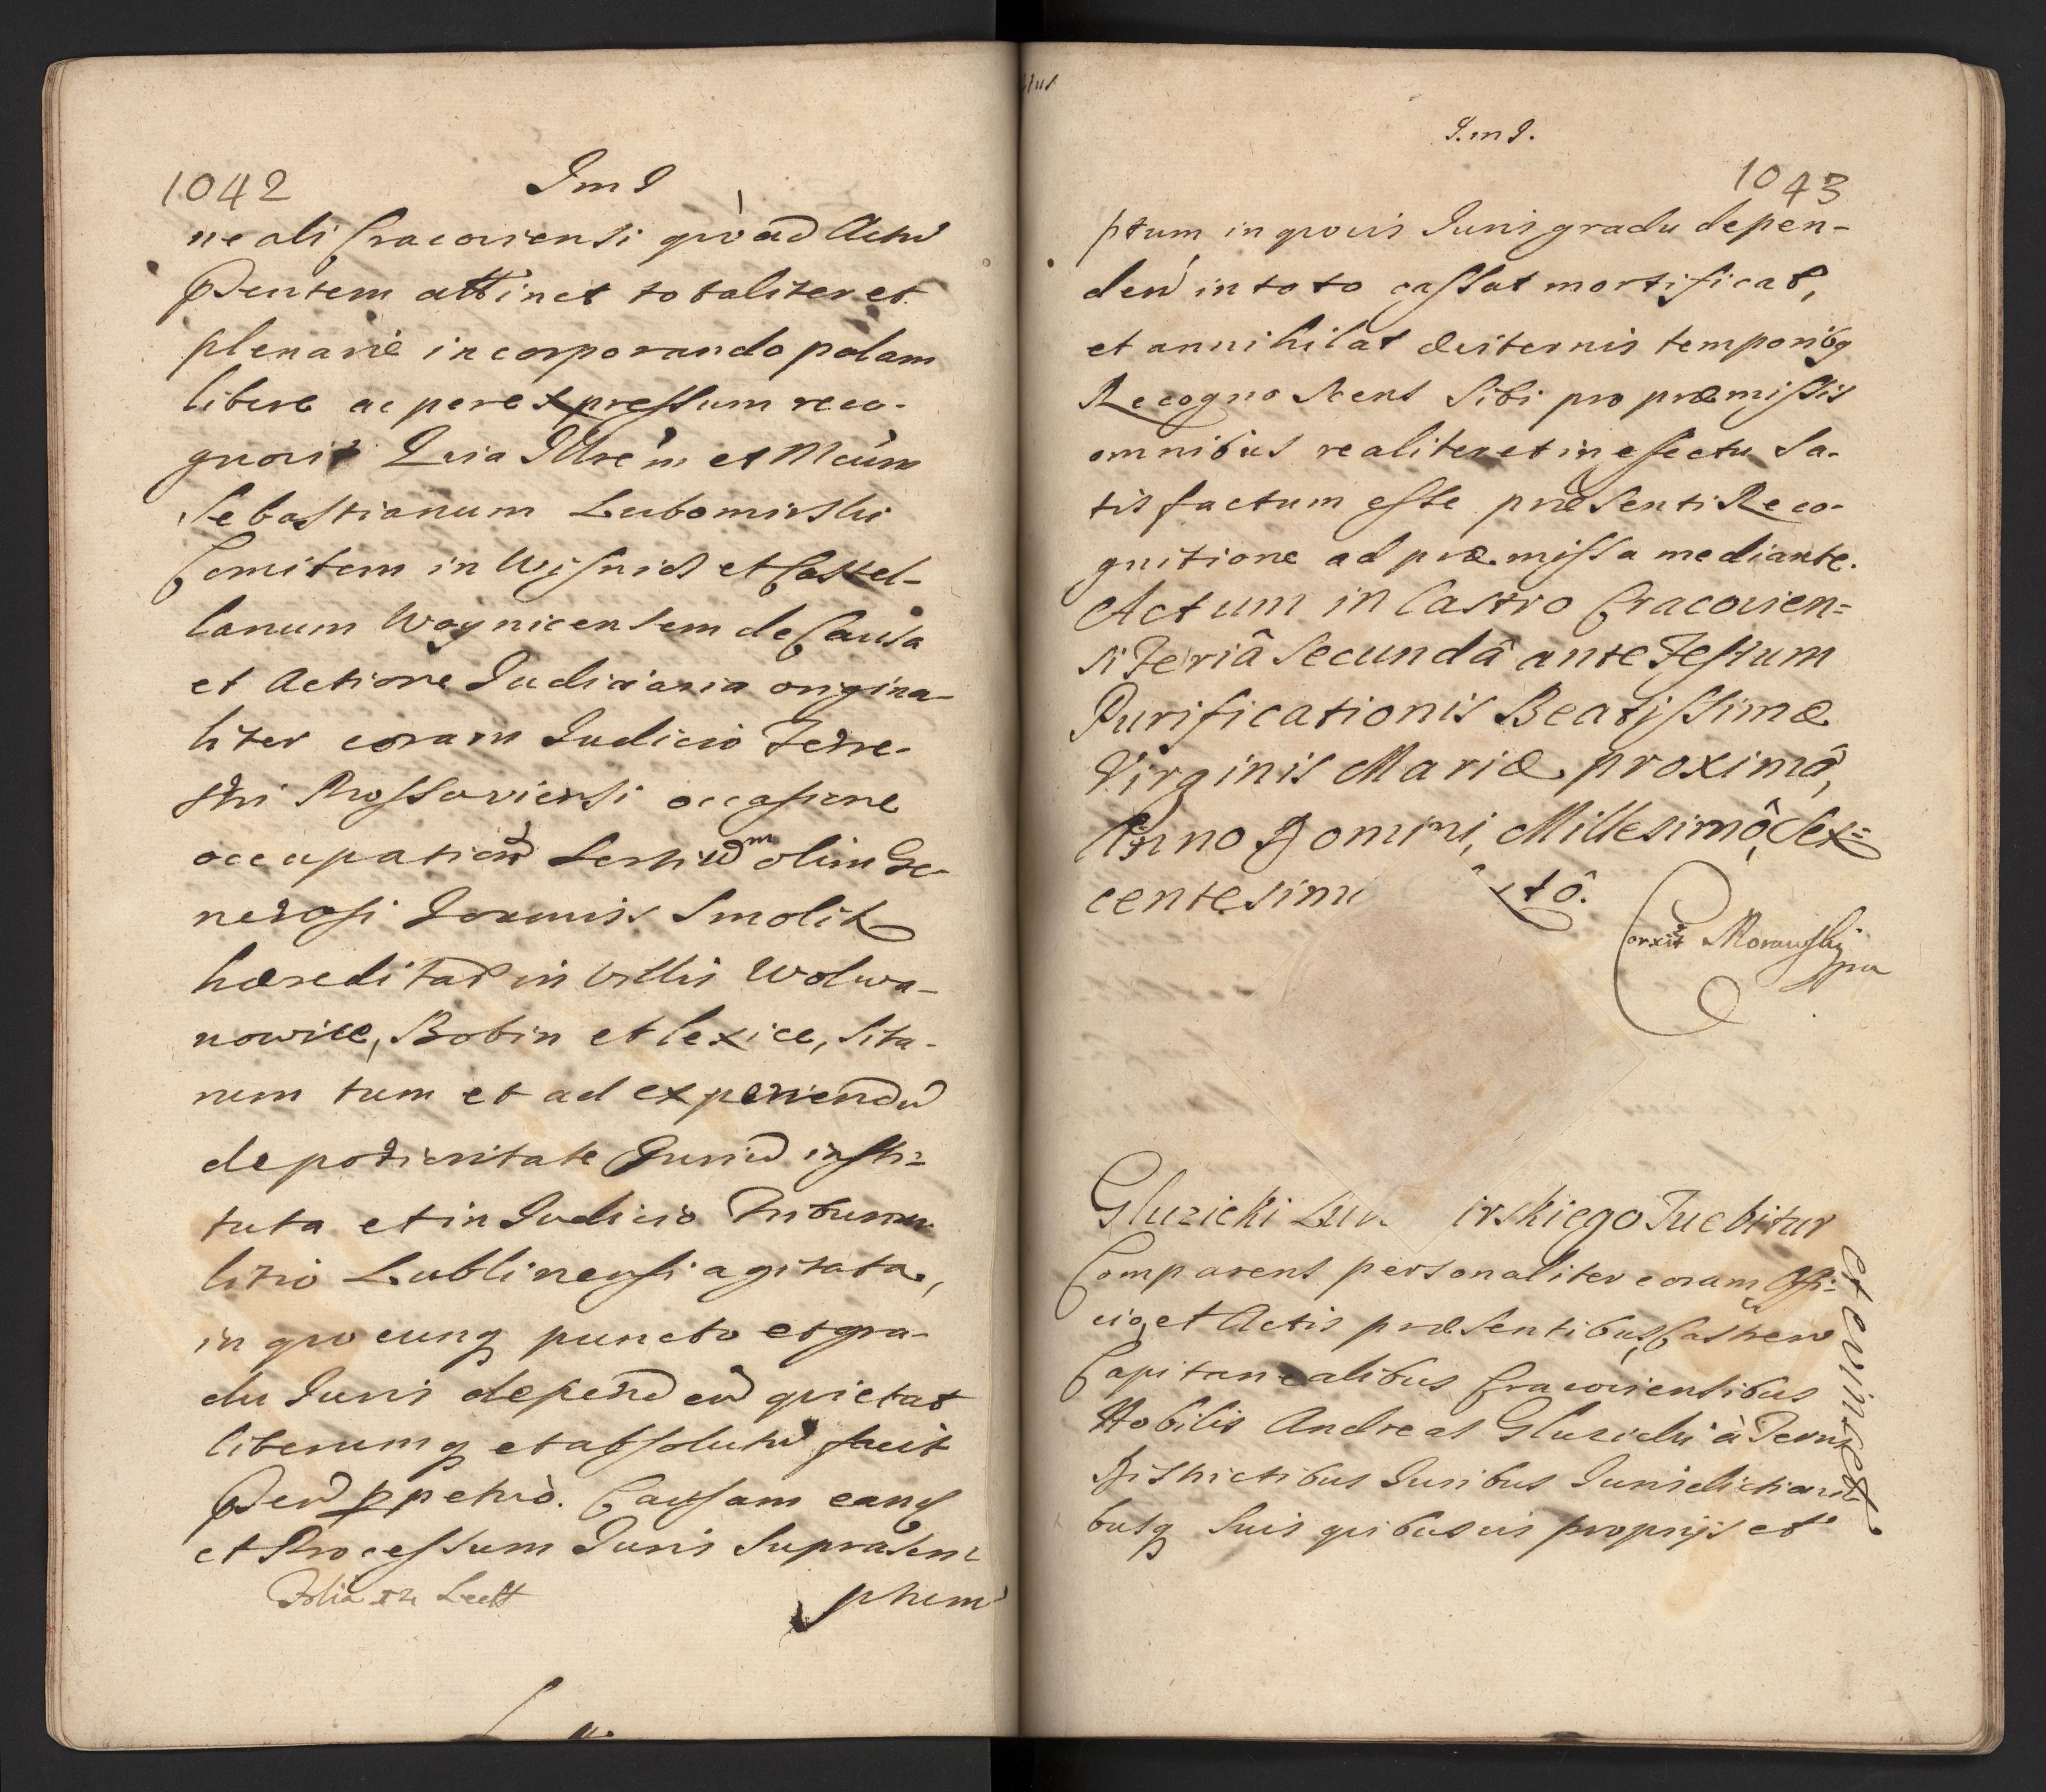 1042
ImI
neali Cracoviensi quò ad Actũ
Pñtem attinet totaliter et
plenarie incorporando palam
libere ac per expressum reco-
gnovit Quia Illrem et Mcum
Sebastianum Lubomirski
Comitem in Wisnicz et Castel-
lanum Woynicensem de Causa
et Actione Judiciaria origina-
liter coram Judicio Terre-
stri Prossoviensi occasione
occupationũ olim Ge-
nerosi Joannis Smolik
hæreditar in Villis Wolwa-
nowice, Bobin et lexice, sita-
rum tum et ad experiendũ
de potioritate Jurium insti-
tuta et in Judicio Tribuna-
litio Lublinensi agitata,
in quocunq puncto et gra-
du Juris depend eũ quietat
liberumq et absolutũ facit
p petuò. Causam eanq
et Processum Juris suprascri
ptum
Folia
I.m I.
1043
ptum, in quovis Juris gradu depen-
den in toto cassat mortificat,
et annihilat æviternis temporibq
Recognoscens Sibi pro præmissis
omnibus realiter et in effectu Sa-
tisfactum esse præsenti Reco-
gnitione ad præmissa mediante.
Actum in Castro Cracovien=
si Feriâ Secundâ ante Festum
Purificationis Beatissimæ
Virginis Mariæ proximâ,
Anno Domini, Millesimô, Sex=
centesimi tô.
Corxit Morawski
mpa
Gluzicki Lub irskiego Tuebitur
et evincet.
Comparens personaliter coram Offi-
cio, et Actis præsentibus, Castren
Capitanealibus Cracoviensibus
Nobilis Andreas Gluzicki à Terris
Districtibus Juribus Jurisdictioni-
busq suis quibusvis proprijs et